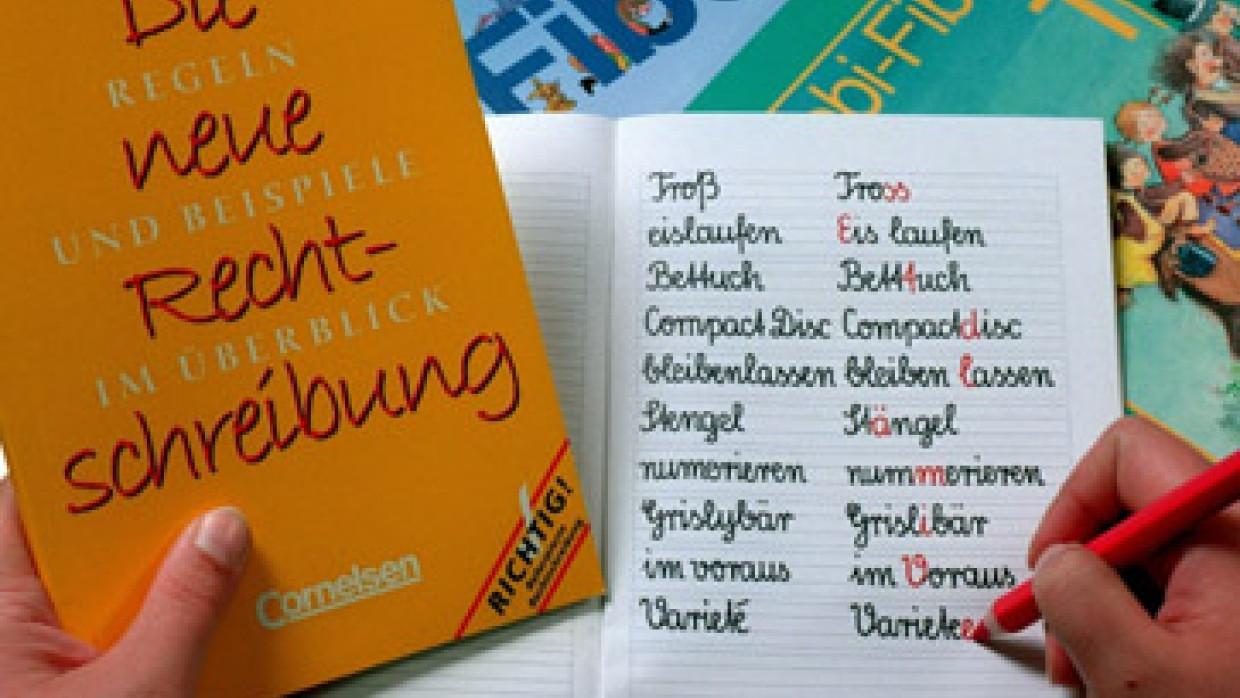 Die
REGELN
neue
UND BEISPIELE
Recht-
IM ÜBERBLICK
schreibung
RICHTIG!
Cornelsen
Fib
bi-Fib
1
Troß Tross
eislaufen Eis laufen
Bettuch Betttuch
Compact Disc Compactdisc
bleibenlassen bleiben lassen
Stengel Stängel
numerieren nummerieren
Grislybär Grislibär
im voraus im Voraus
Varieté Varietee